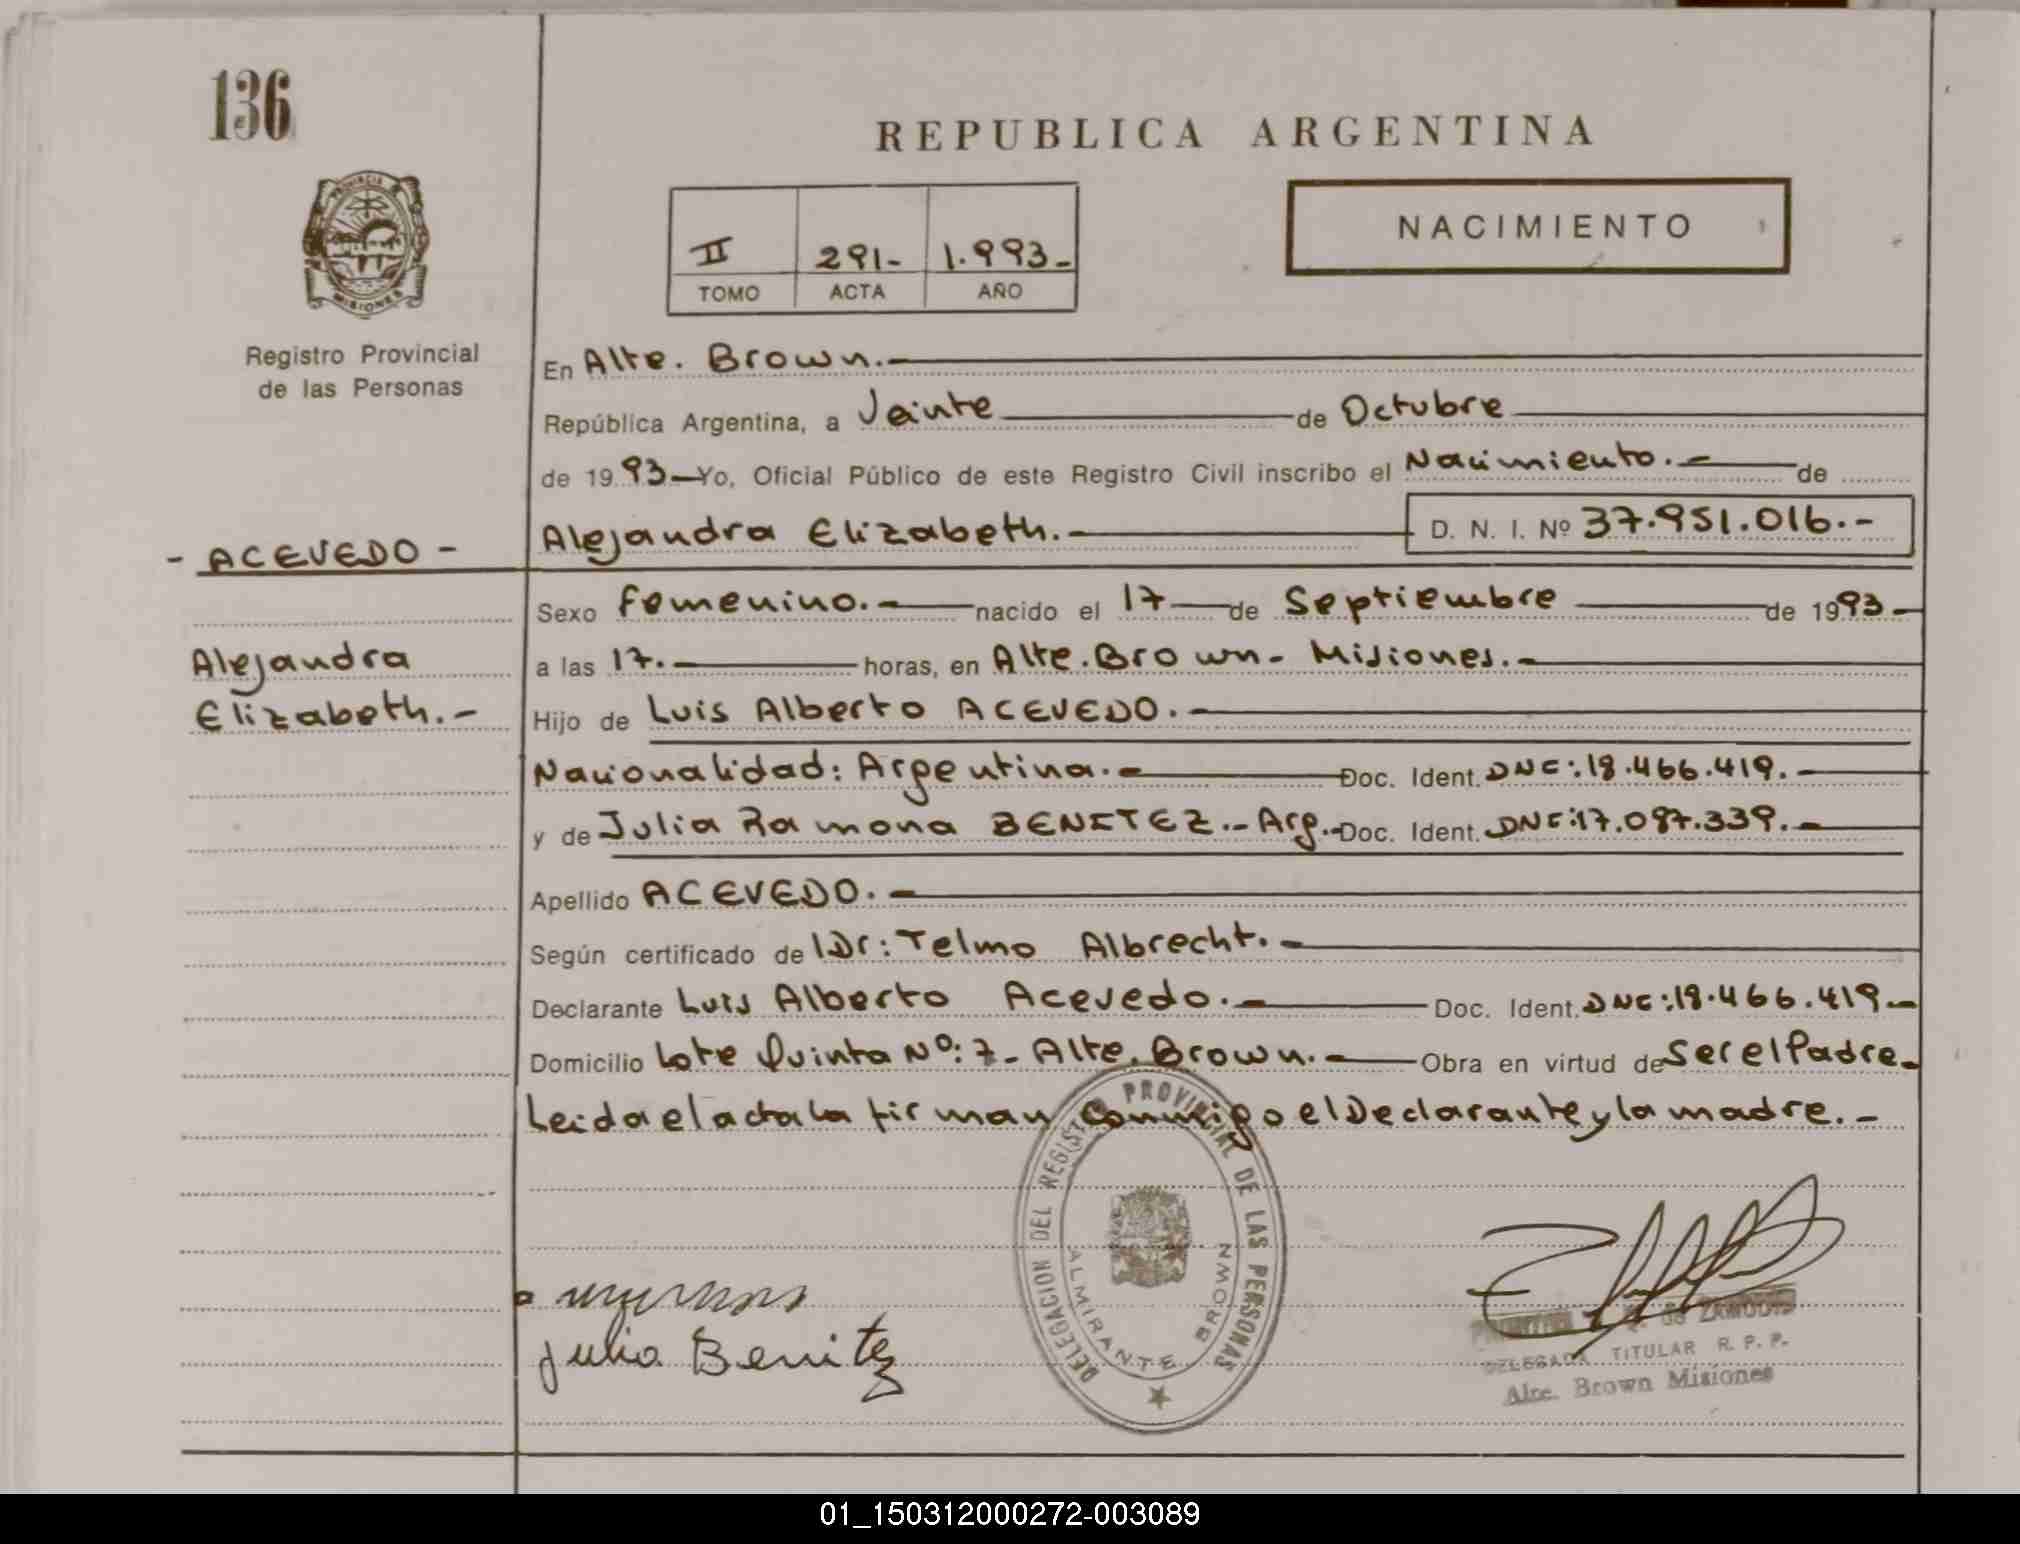 136
REPUBLICA ARGENTINA
NACIMIENTO
II 291- 1.993-
TOMO ACTA AÑO
PROVINCIA
MISIONES
Registro Provincial
de las Personas
En Alte. Brown.-
República Argentina, a Veinte de Octubre
de 19 93- Yo, Oficial Público de este Registro Civil inscribo el Nacimiento.- de
- ACEVEDO -
Alejandra Elizabeth.- D. N. I. Nº 37.951.016.-
Sexo Femenino.- nacido el 17 de Septiembre de 19 93-
Alejandra
Elizabeth.-
a las 17.- horas, en Alte. Brown- Misiones.-
Hijo de Luis Alberto ACEVEDO.-
Nacionalidad: Argentina.- Doc. Ident. DNI: 18.466.419.-
y de Julia Ramona BENITEZ.- Arg.- Doc. Ident. DNI: 17.087.339.-
Apellido ACEVEDO.-
Según certificado de Dr: Telmo Albrecht.-
Declarante Luis Alberto Acevedo.- Doc. Ident. DNI: 18.466.419-
Domicilio Lote Quinta Nº: 7- Alte. Brown.- Obra en virtud de Ser el Padre-
Leida el acta la firman conmigo el Declarante y la madre.-
DELEGACION DEL REGISTRO PROVINCIAL DE LAS PERSONAS
ALMIRANTE BROWN
Julia Benitez
de ZAMUDIO
DELEGADA TITULAR R. P. P.
Alte. Brown Misiones
01_150312000272-003089